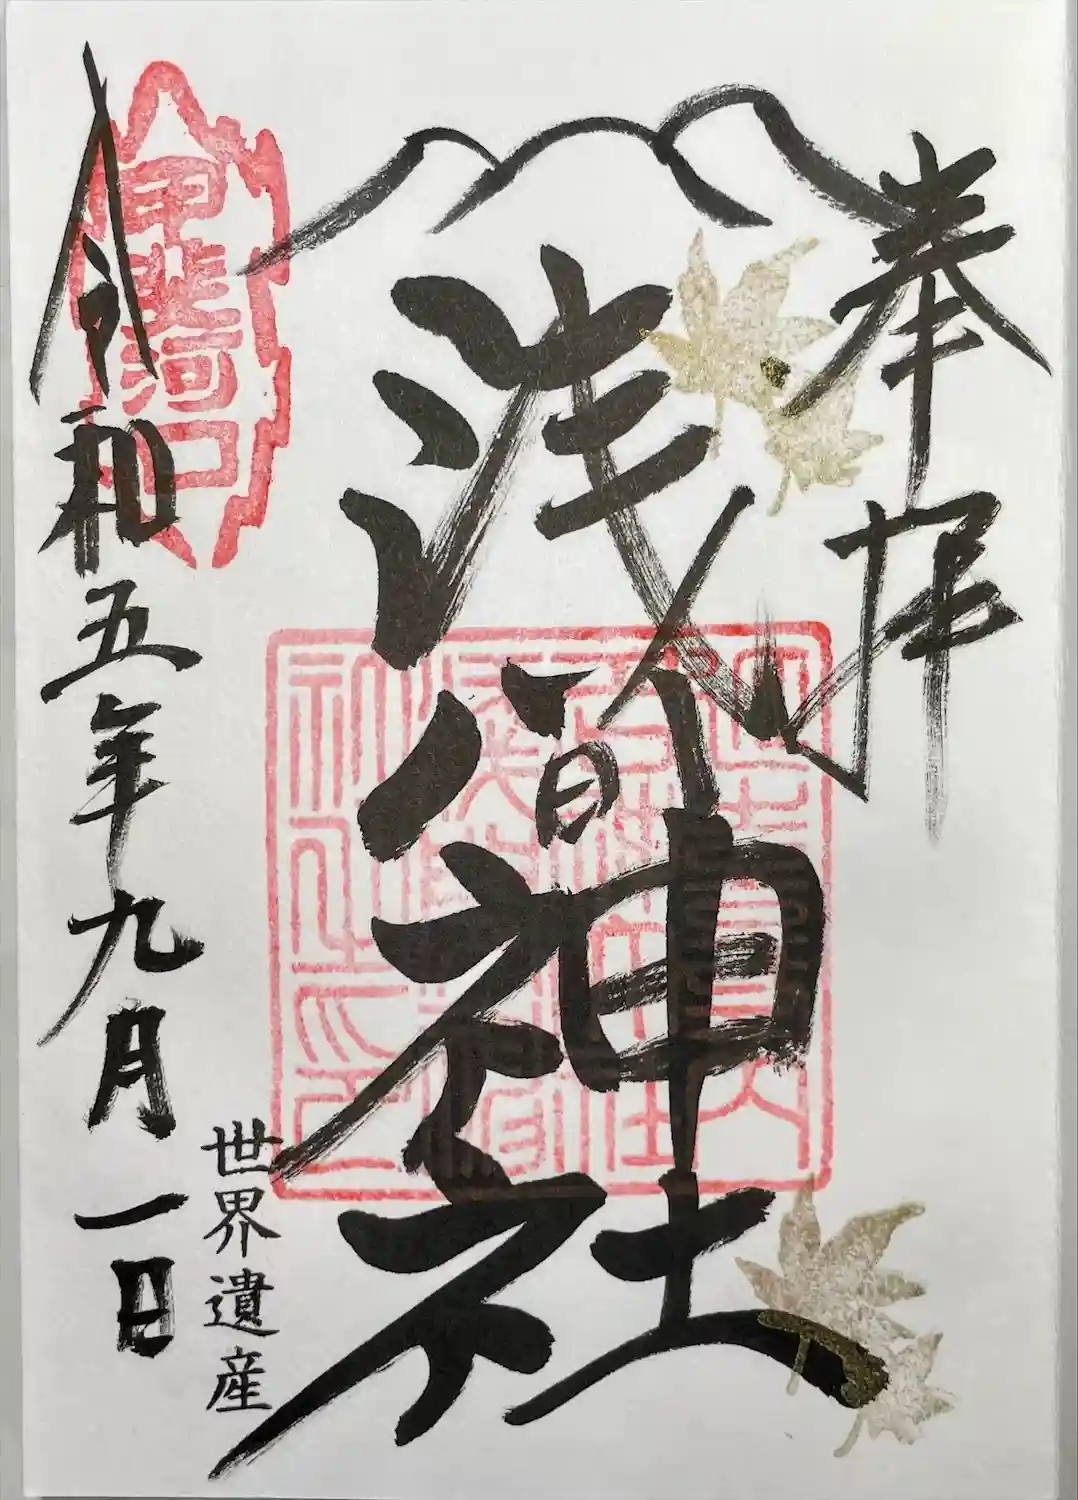 奉拝
浅間神社
世界遺産
甲斐河口
令和五年九月一日